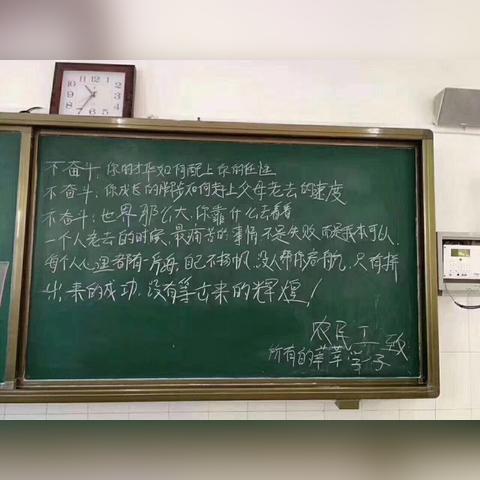 不奋斗,你的才华如何配上你的任性
不奋斗,你成长的脚步如何赶上父母老去的速度
不奋斗:世界那么大,你靠什么去看看
一个人老去的时候,最痛苦的事情不是失败,而是我本可以.
每个人心里都有一片海,自己不扬帆,没人帮你启航,只有拼
出来的成功,没有等出来的辉煌!
农民工 致
所有的莘莘学子